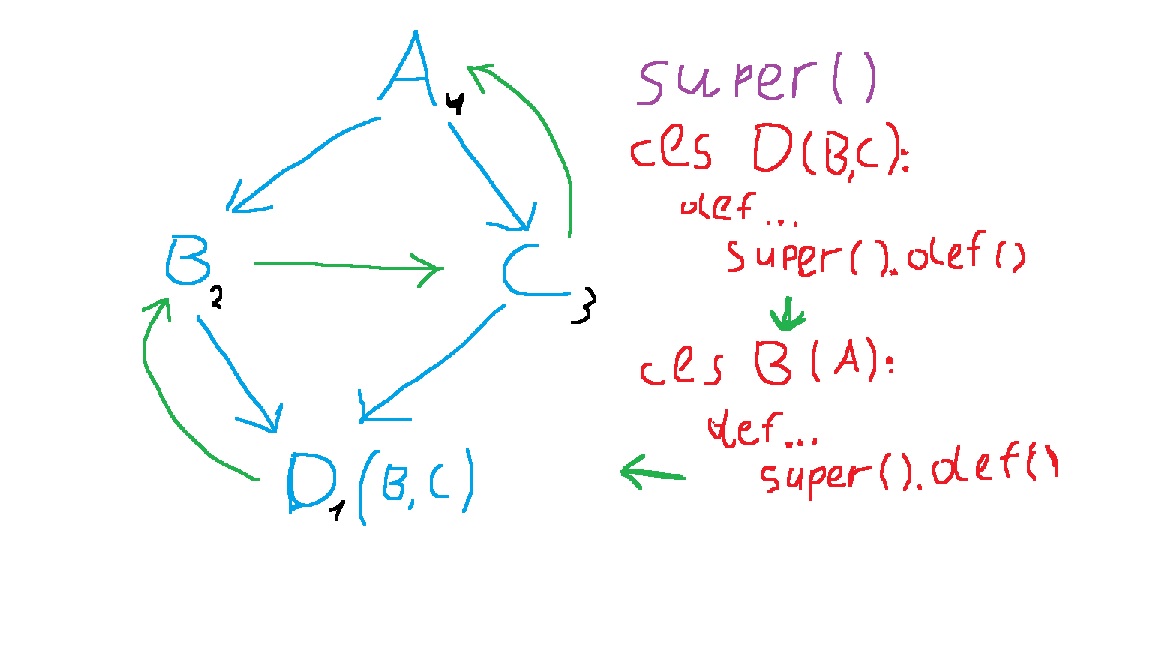 A 4
B 2
C 3
D 1 (B,C)
super()
cls D(B,C):
def...
super().def()
cls B(A):
def...
super().def()